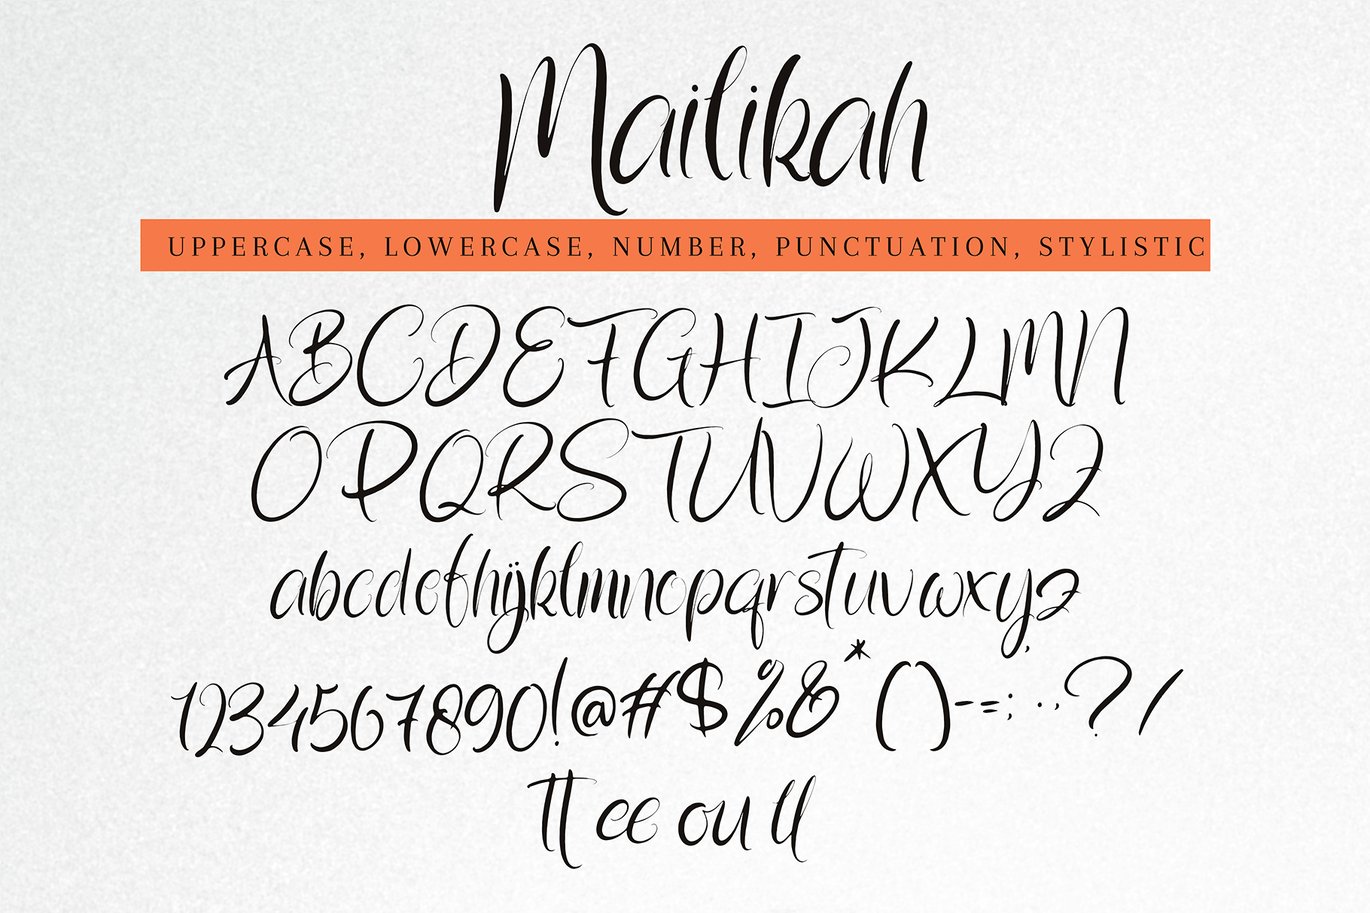 Mailikah
UPPERCASE, LOWERCASE, NUMBER, PUNCTUATION, STYLISTIC
ABCDEFGHIJKLMN
OPQRSTUVWXYZ
abcdefhijklmnopqrstuvwxyz
1234567890!@#$%&*()-=;.,?/
tt ee ou ll